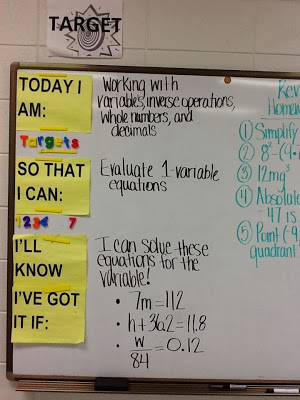 TARGET
TODAY I
AM:
Working with
variables, inverse operations,
whole numbers, and
decimals
Targets
SO THAT
I CAN:
Evaluate 1-variable
equations
1234 7
I'LL
KNOW
I'VE GOT
IT IF:
I can solve these
equations for the
variable!
• 7m=112
• h+36.2=11.8
• w/84=0.12
Rev
Homew
① Simplify
② 8²-(4•
③ 12mg³
④ Absolute
-47 is
⑤ Point (-9,
quadrant